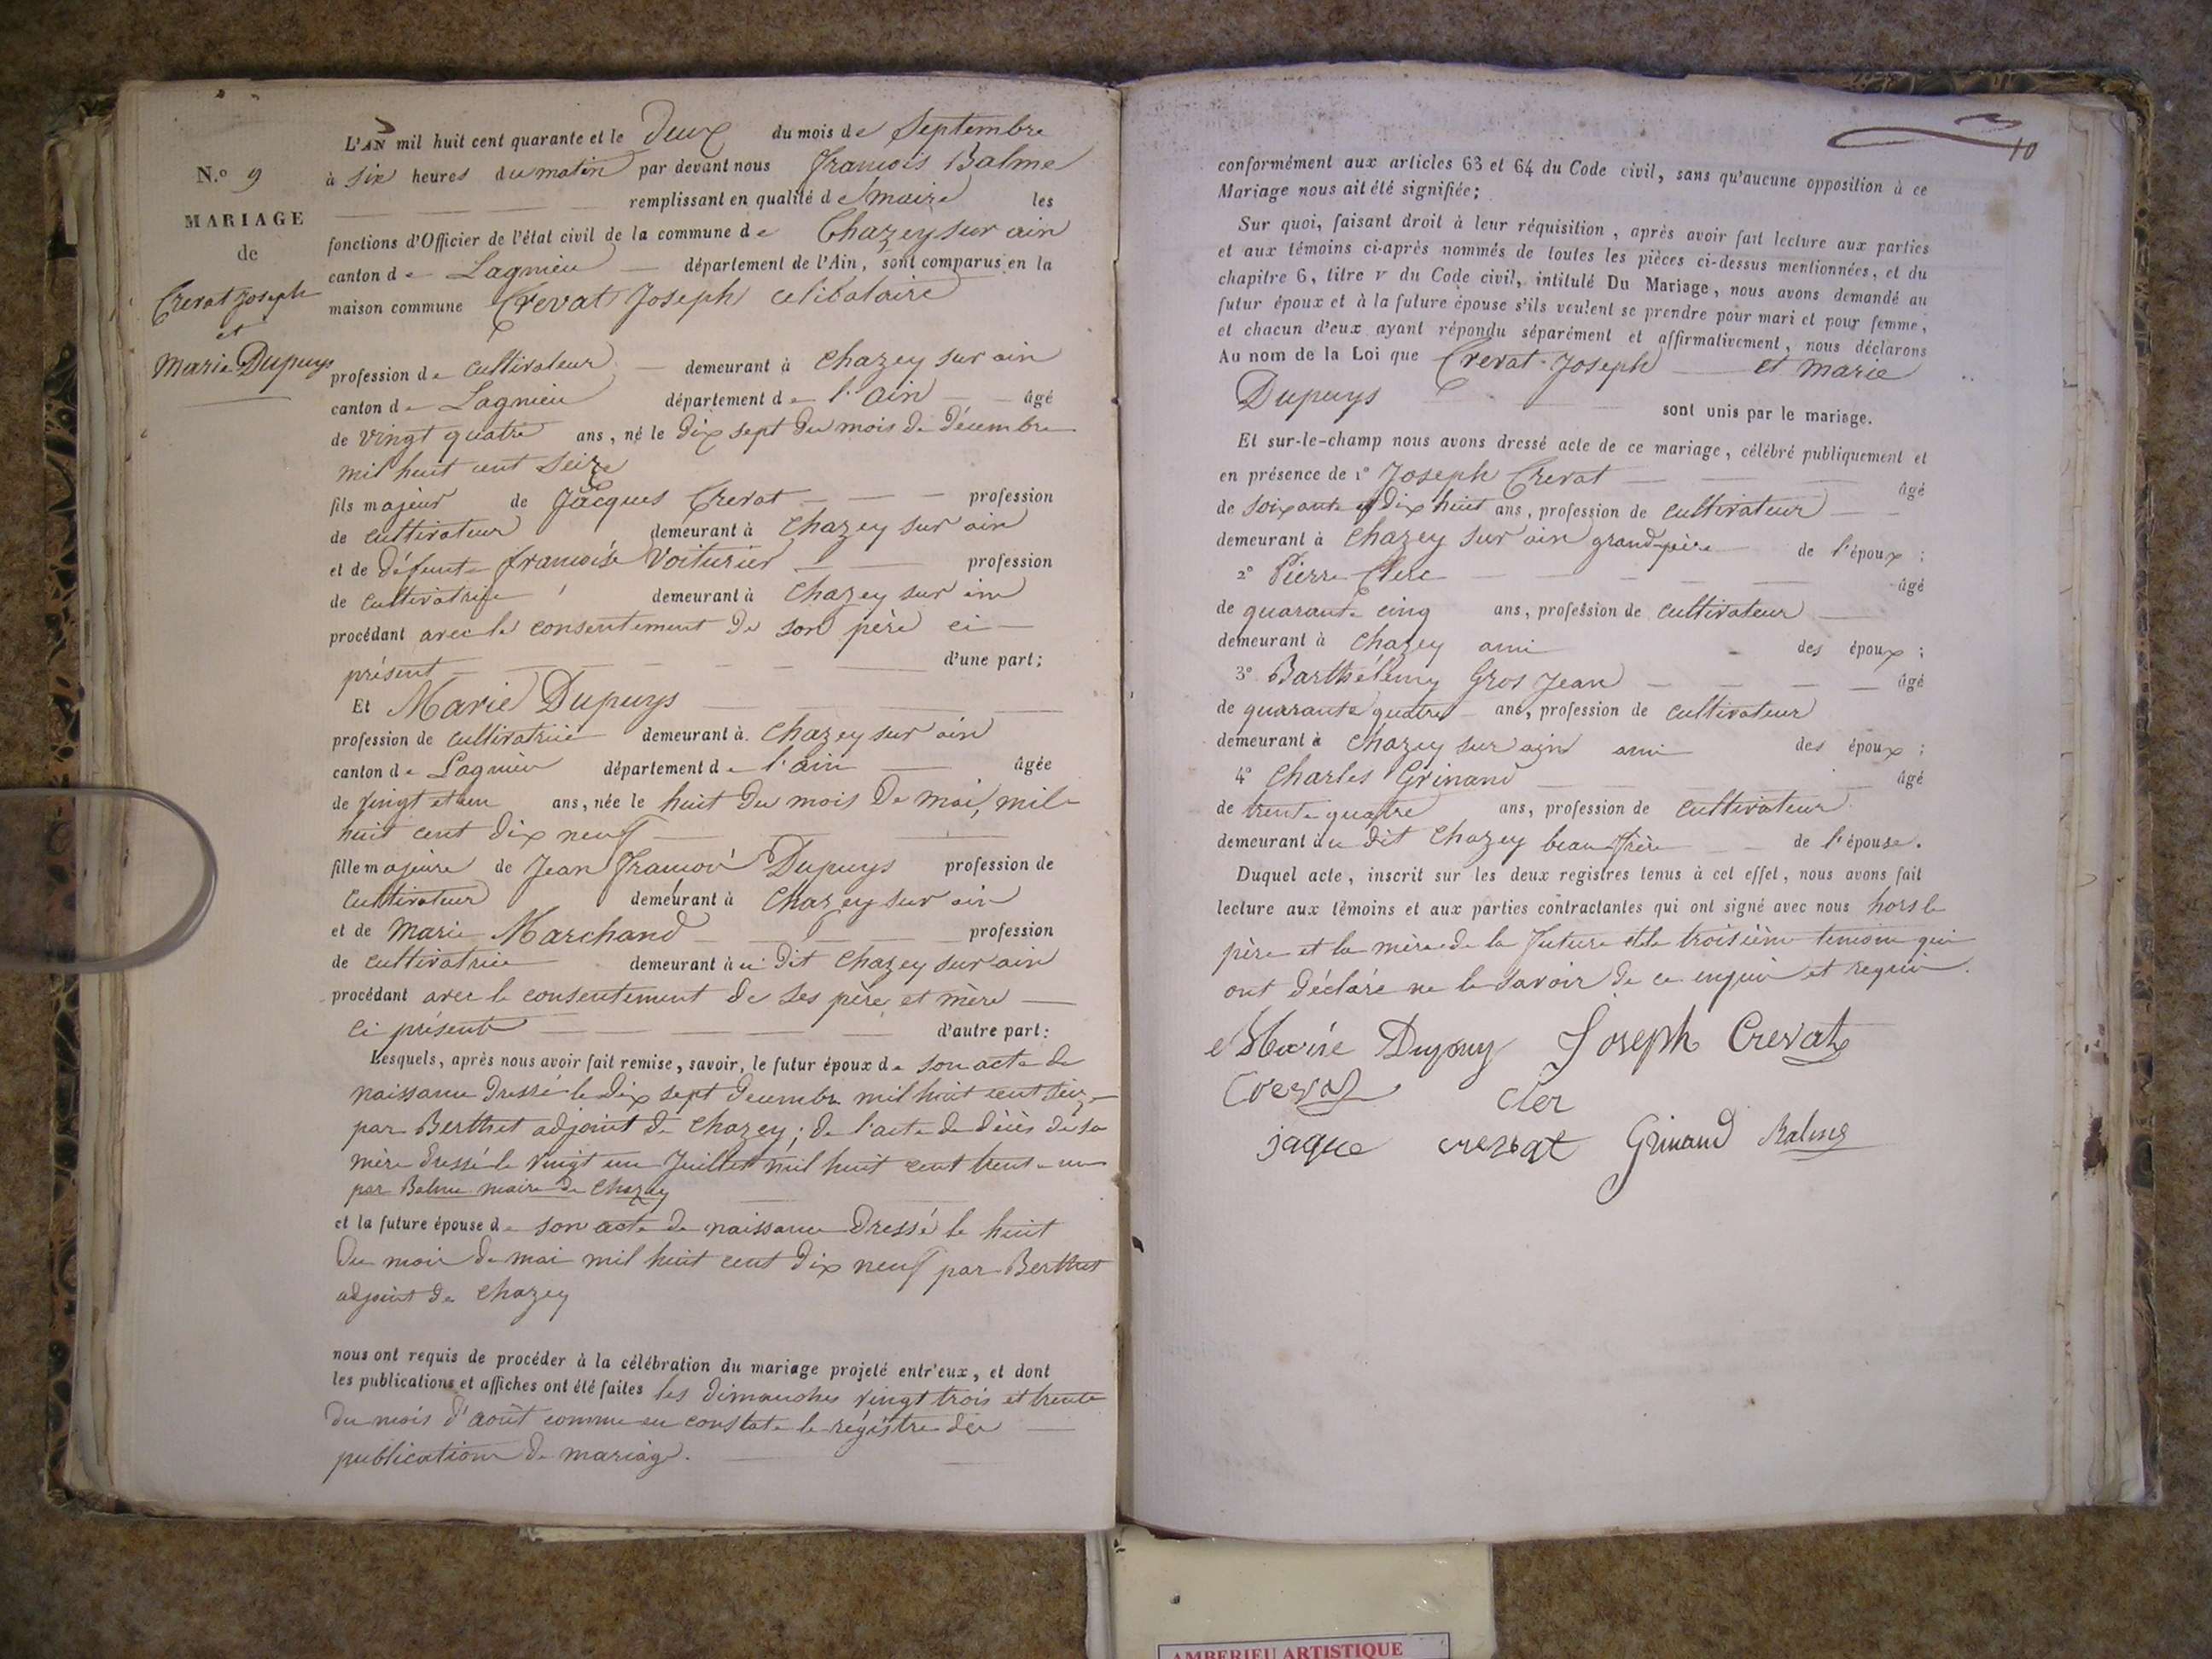 N.o 9
MARIAGE
de
Crevat Joseph
et
Marie Dupuys
L'AN mil huit cent quarante et le Deux du mois de Septembre
à six heures du matin par devant nous François Balme
remplissant en qualité de maire les
fonctions d'Officier de l'état civil de la commune de Chazey sur ain
canton de Lagnieu département de l'Ain, sont comparus en la
maison commune Crevat Joseph celibataire
profession de cultivateur demeurant à Chazey sur ain
canton de Lagnieu département de l'ain âgé
de vingt quatre ans, né le dix sept du mois de décembre
mil huit cent seize
fils majeur de Jacques Crevat profession
de cultivateur demeurant à Chazey sur ain
et de défunte françoise Voiturier profession
de cultivatrice demeurant à Chazey sur ain
procédant avec le consentement de son père ci
présent d'une part;
Et Marie Dupuys
profession de cultivatrice demeurant à Chazey sur ain
canton de Lagnieu département de l'ain âgée
de vingt et un ans, née le huit du mois de mai, mil
huit cent dix neuf
fille majeure de Jean François Dupuys profession de
cultivateur demeurant à Chazey sur ain
et de Marie Marchand profession
de cultivatrice demeurant au dit Chazey sur ain
procédant avec le consentement de ses père et mère
ci présents d'autre part:
Lesquels, après nous avoir fait remise, savoir, le futur époux de son acte de
naissance dressé le dix sept decembre mil huit cent seize
par Berthet adjoint de Chazey; de l'acte de décès de sa
mère dressé le vingt un Juillet mil huit cent trente un
par Balme maire de Chazey
et la future épouse de son acte de naissance dressé le huit
du mois de mai mil huit cent dix neuf par Berthet
adjoint de Chazey
nous ont requis de procéder à la célébration du mariage projeté entr'eux, et dont
les publications et affiches ont été faites les dimanches vingt trois et trente
du mois d'août comme en constate le régistre des
publications de mariage.
10
conformément aux articles 63 et 64 du Code civil, sans qu'aucune opposition à ce
Mariage nous ait été signifiée;
Sur quoi, faisant droit à leur réquisition, après avoir fait lecture aux parties
et aux témoins ci-après nommés de toutes les pièces ci-dessus mentionnées, et du
chapitre 6, titre v du Code civil, intitulé Du Mariage, nous avons demandé au
futur époux et à la future épouse s'ils veulent se prendre pour mari et pour femme,
et chacun d'eux ayant répondu séparément et affirmativement, nous déclarons
Au nom de la Loi que Crevat Joseph et Marie
Dupuys sont unis par le mariage.
Et sur-le-champ nous avons dressé acte de ce mariage, célébré publiquement et
en présence de 1o Joseph Crevat âgé
de soixante et dix huit ans, profession de cultivateur
demeurant à Chazey sur ain grand-père de l'époux;
2o Pierre Clerc âgé
de quarante cinq ans, profession de cultivateur
demeurant à Chazey ami des époux;
3o Barthélemy Gros Jean âgé
de quarante quatre ans, profession de cultivateur
demeurant à Chazey sur ain ami des époux;
4o Charles Grinand âgé
de trente quatre ans, profession de cultivateur
demeurant au dit Chazey beau frère de l'épouse.
Duquel acte, inscrit sur les deux registres tenus à cet effet, nous avons fait
lecture aux témoins et aux parties contractantes qui ont signé avec nous hors le
père et la mère de la future et le troisième temoin qui
ont déclaré ne le savoir de ce enquis et requis.
Marie Dupuy Joseph Crevat
Crevat Cler
jaque crevat Grinand Balme
AMBERIEU ARTISTIQUE